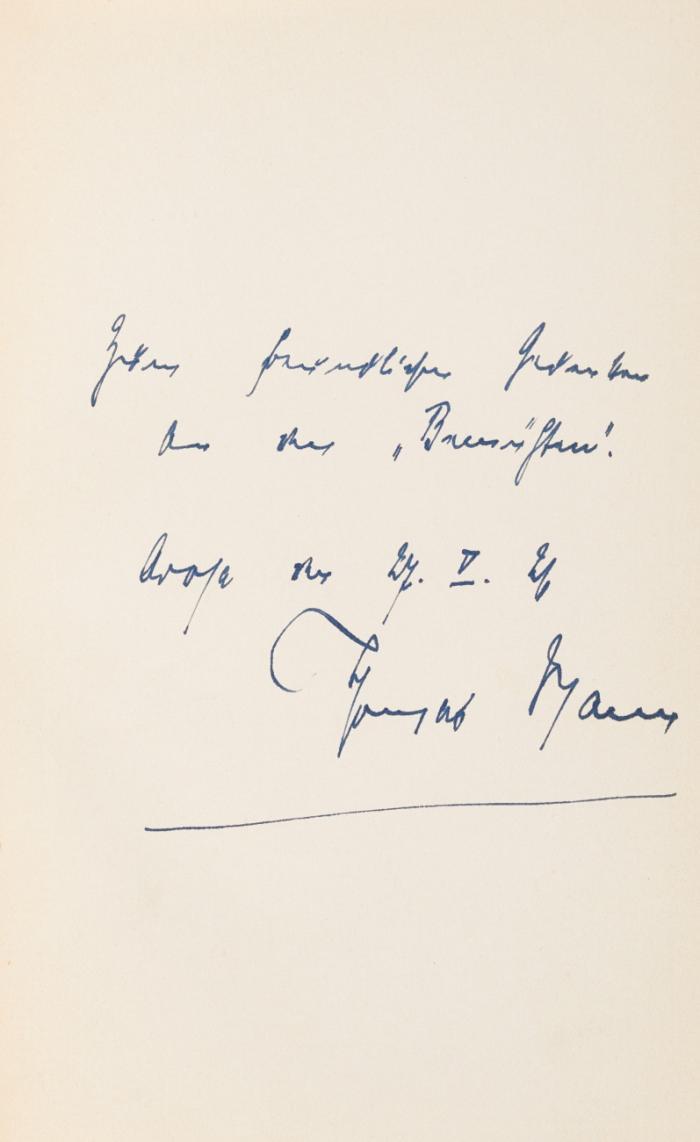 Zum freundlichen Gedenken
an den „Bemühten“.
Arosa den 27. V. 26
Thomas Mann